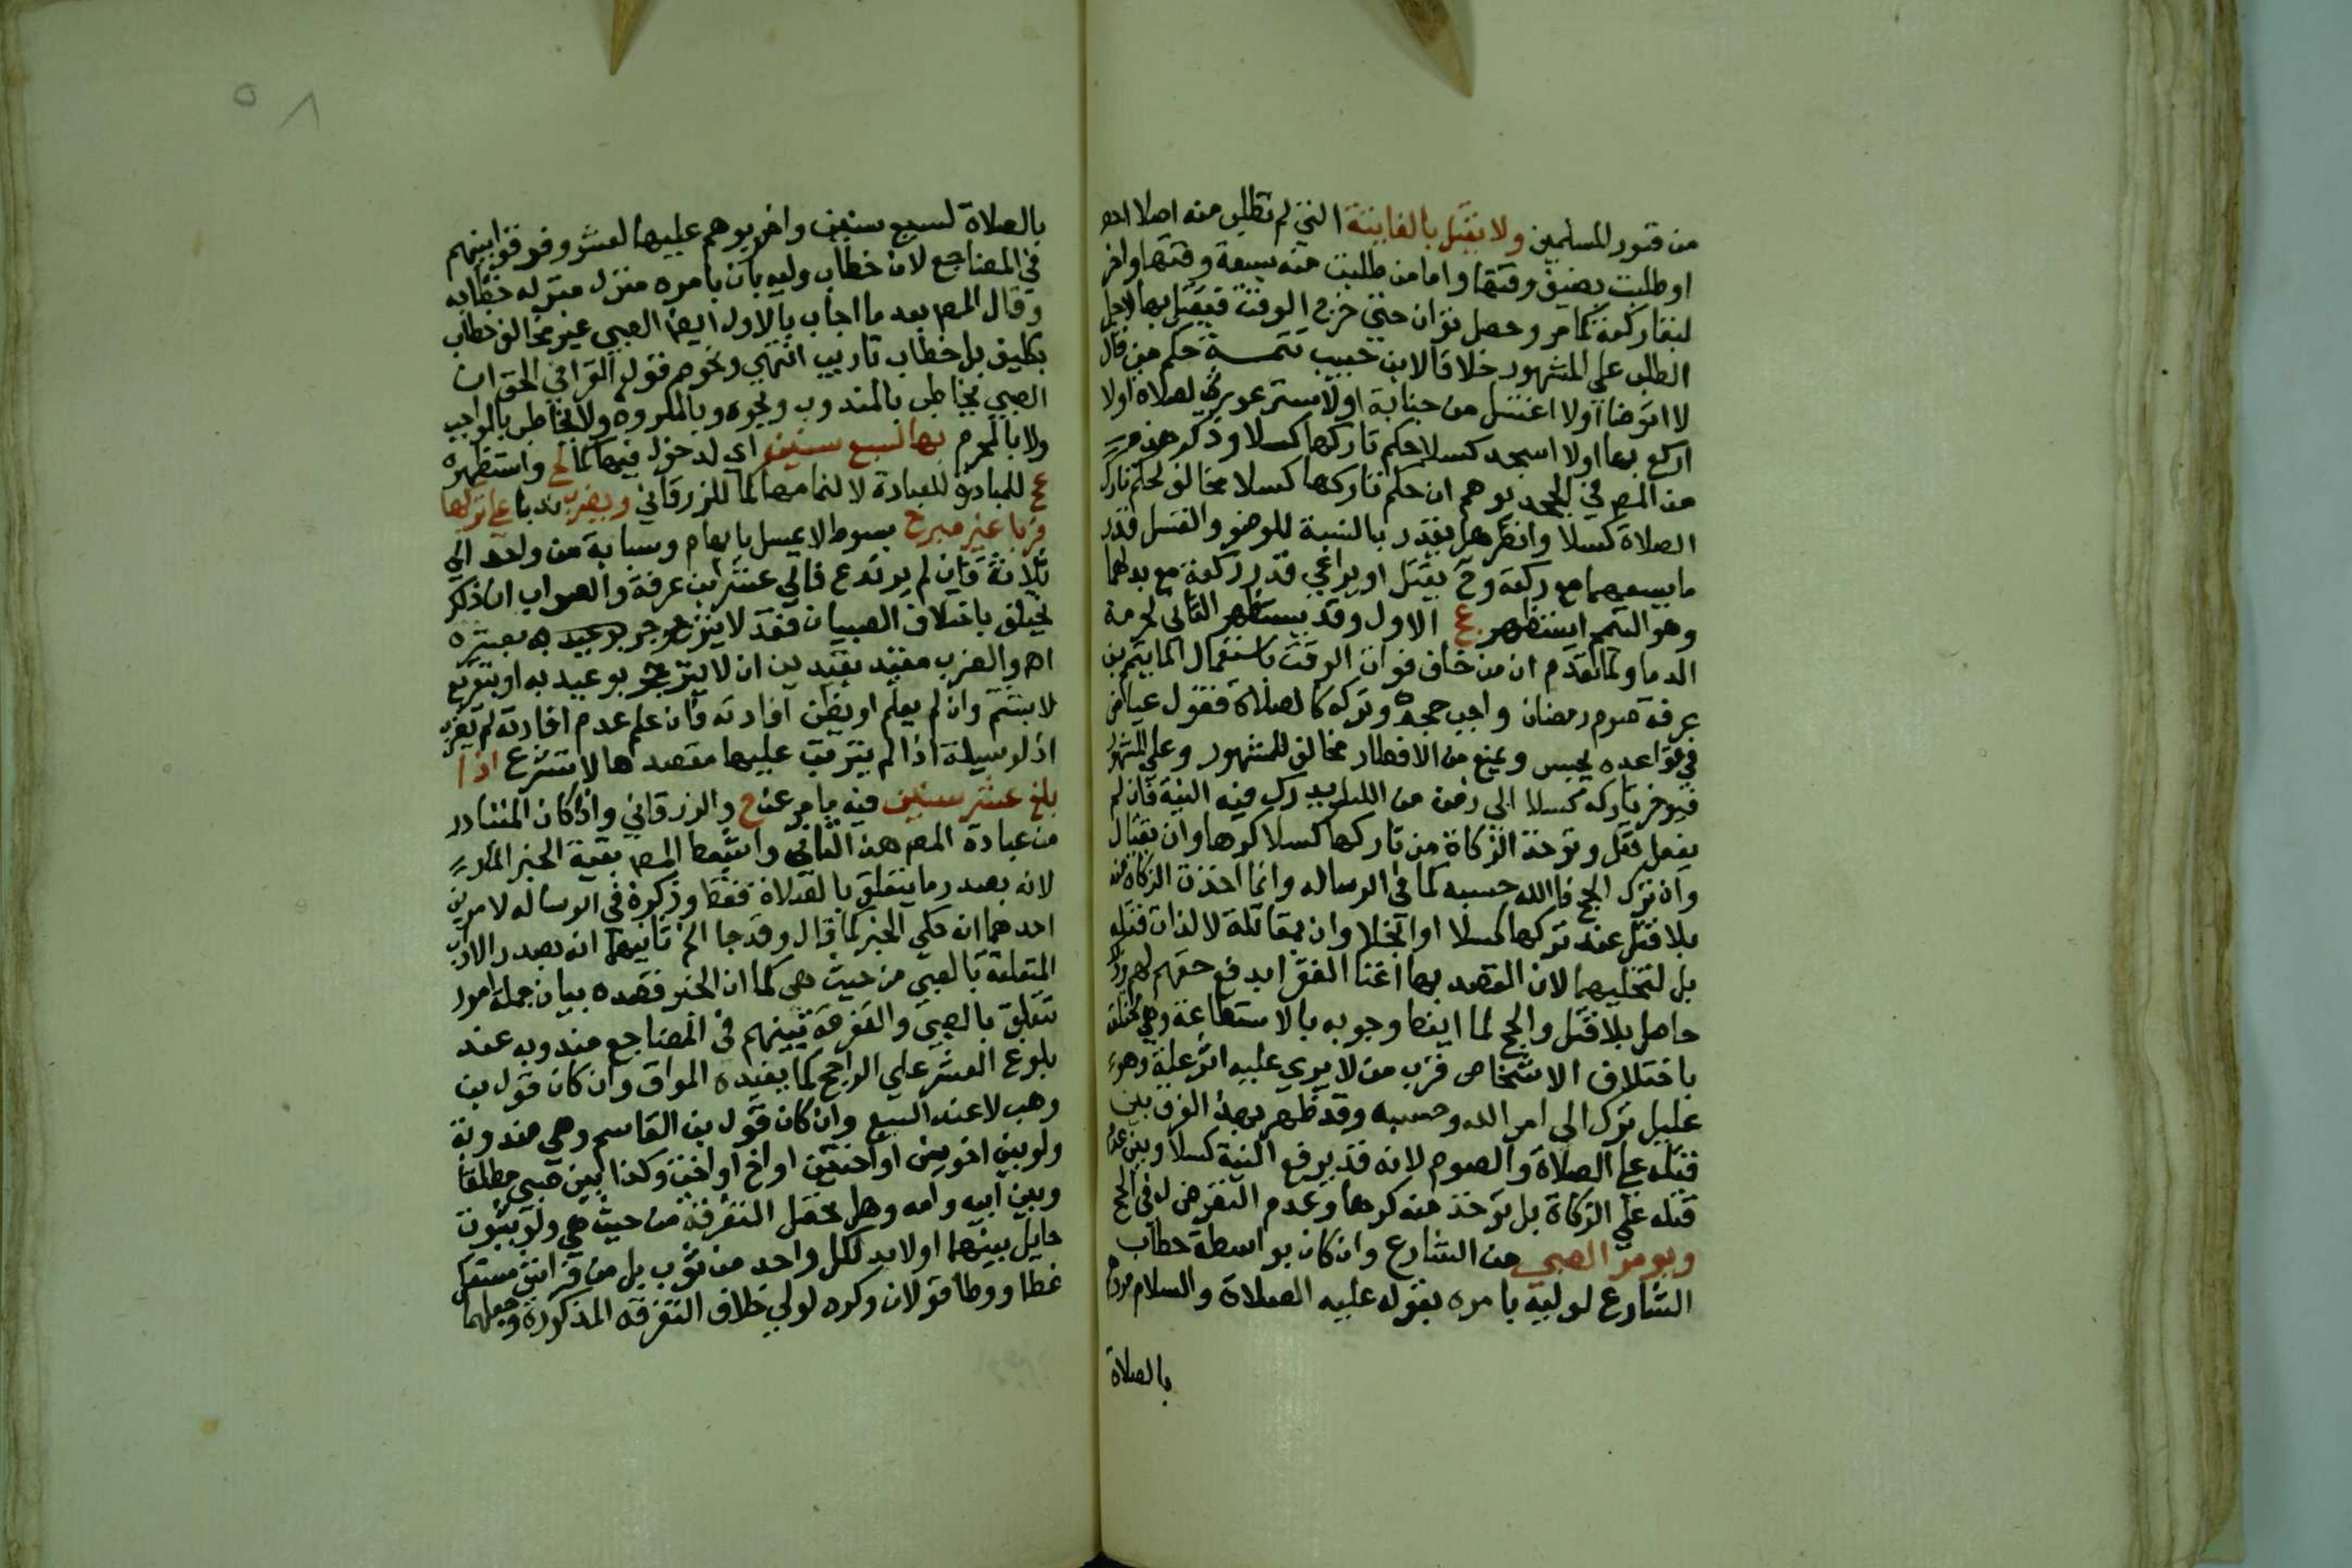 من قبور المسلمين ولا يقتل بالفايتة التي لم تطلب منه اصلا
او طلبت بضيق وقتها واما من طلبت منه بسعة وقتها واخر
لبقا ركعة كما مر وحصل توان حتي خرج الوقت فيقتل بها لاجل
الطلب علي المشهور خلافا لابن حبيب تتمة حكم من قال
لا اتوضا اولا اغتسل من جنابة اولا استر عورتي لصلاة اولا
اركع بها اولا اسجد كسلا حكم تاركها كسلا وذكر هذه
من المص في الجحد يوهم ان حكم تاركها كسلا مخالف لحكم تارك
الصلاة كسلا وانظر هل يقدر بالنسبة للوضو والغسل قدر
ما يسعهما مع ركعة وح يقتل او يراعي قدر ركعة مع بدلهما
وهو التيمم استظهر عج الاول وقد يستظهر الثاني لحرمة
الدما ولما تقدم ان من خاف فوات الوقت باستعمال الما يتيمم بن
عرفة صوم رمضان واجب جحده وتركه كالصلاة فقول عياض
في قواعده يحبس ويمنع من الافطار مخالف للمشهور وعلي المشهور
فيوخر تاركه كسلا الي زمن من الليل يدرك فيه النية فان لم
يفعل قتل وتوخذ الزكاة من تاركها كسلا كرها وان بقتال
وان ترك الحج فالله حسبه كما في الرساله وانما اخذت الزكاة منه
بلا قتل عند تركها كسلا او بخلا وان بمقاتلة لا لذات قتله
بل لتخليها لان القصد بها اغنا الفقرا بدفع حقهم لهم وذلك
حاصل بلا قتل والحج لما ايضا وجوبه بالاستطاعة وهي تختلف
باختلاف الاشخاص فرب من لا يري عليه اثر علة وهو
عليل ترك الي امر الله وحسبه وقد ظهر بهذا الفرق بين
قتله علي الصلاة والصوم لانه قد يرفع النية كسلا وبين عدم
قتله علي الزكاة بل توخذ منه كرها وعدم التعرض له في الحج
ويومر الصبي من الشارع وان كان بواسطة خطاب
الشارع لوليه بامره بقوله عليه الصلاة والسلام مروهم
بالصلاة
بالصلاة لسبع سنين واضربوهم عليها لعشر وفرقوا بينهم
في المضاجع لان خطاب وليه بان يامره منزل منزلة خطابه
وقال المص بعد ما اجاب بالاول ايضا الصبي غير مخالف خطاب
تكليف بل خطاب تاديب انتهي ونحوه قول القرافي الحق ان
الصبي مخاطب بالمندوب ونحوه وبالمكروه ولا يخاطب بالواجب
ولا بالمحرم بها لسبع سنين اي لدخول فيها كما لح واستظهره
عج للمبادرة للعبادة لا لتمامها كما للزرقاني ويضرب ندبا علي تركها
ضربا غير مبرح بسوط لا يمسك بابهام وسبابة من واحد الي
ثلاثة فان لم يرتدع فالي عشر ابن عرفة والصواب ان ذلك
يختلف باختلاف الصبيان فقد لا ينزجر بوعيد به بعشرة
اه والضرب مقيد بقيدين ان لا ينزجر بوعيد به او بتقريع
لا بشتم وان لم يعلم او يظن افادته فان علم عدم افادته لم يضرب
اذ الوسيلة اذا لم يترتب عليها مقصدها لا تشرع اذا
بلغ عشر سنين فيه ما مر عن ح والزرقاني واذا كان المتبادر
من عبادة المص هذا الثاني واسقط المص بقية الخبر المار
لانه بصدر ما يتعلق بالصلاة فقط وذكره في الرساله لامرين
احدهما انه حكي الخبر كما قال وقد جا الخ ثانيهما انه بصدر الاداب
المتعلقة بالصبي من حيث هي كما ان الخبر قصده بيان جملة امور
تتعلق بالصبي والتفرقة بينهم في المضاجع مندوبه عند
بلوغ العشر علي الراجح كما يفيده المواق وان كان قول بن
وهب لا عند السبع وان كان قول بن القاسم وهي مندوبة
ولو بين اخوين او اختين او اخ او اخت وكذا بين صبي مطلقا
وبين ابيه وامه وهل تحصل التفرقة من حيث هي ولو بثوب
حايل بينهما او لابد لكل واحد من ثوب بل من فراش مستقل
غطا ووطا قولان وكره لولي خلاف التفرقة المذكورة وجعلهما
٥٨